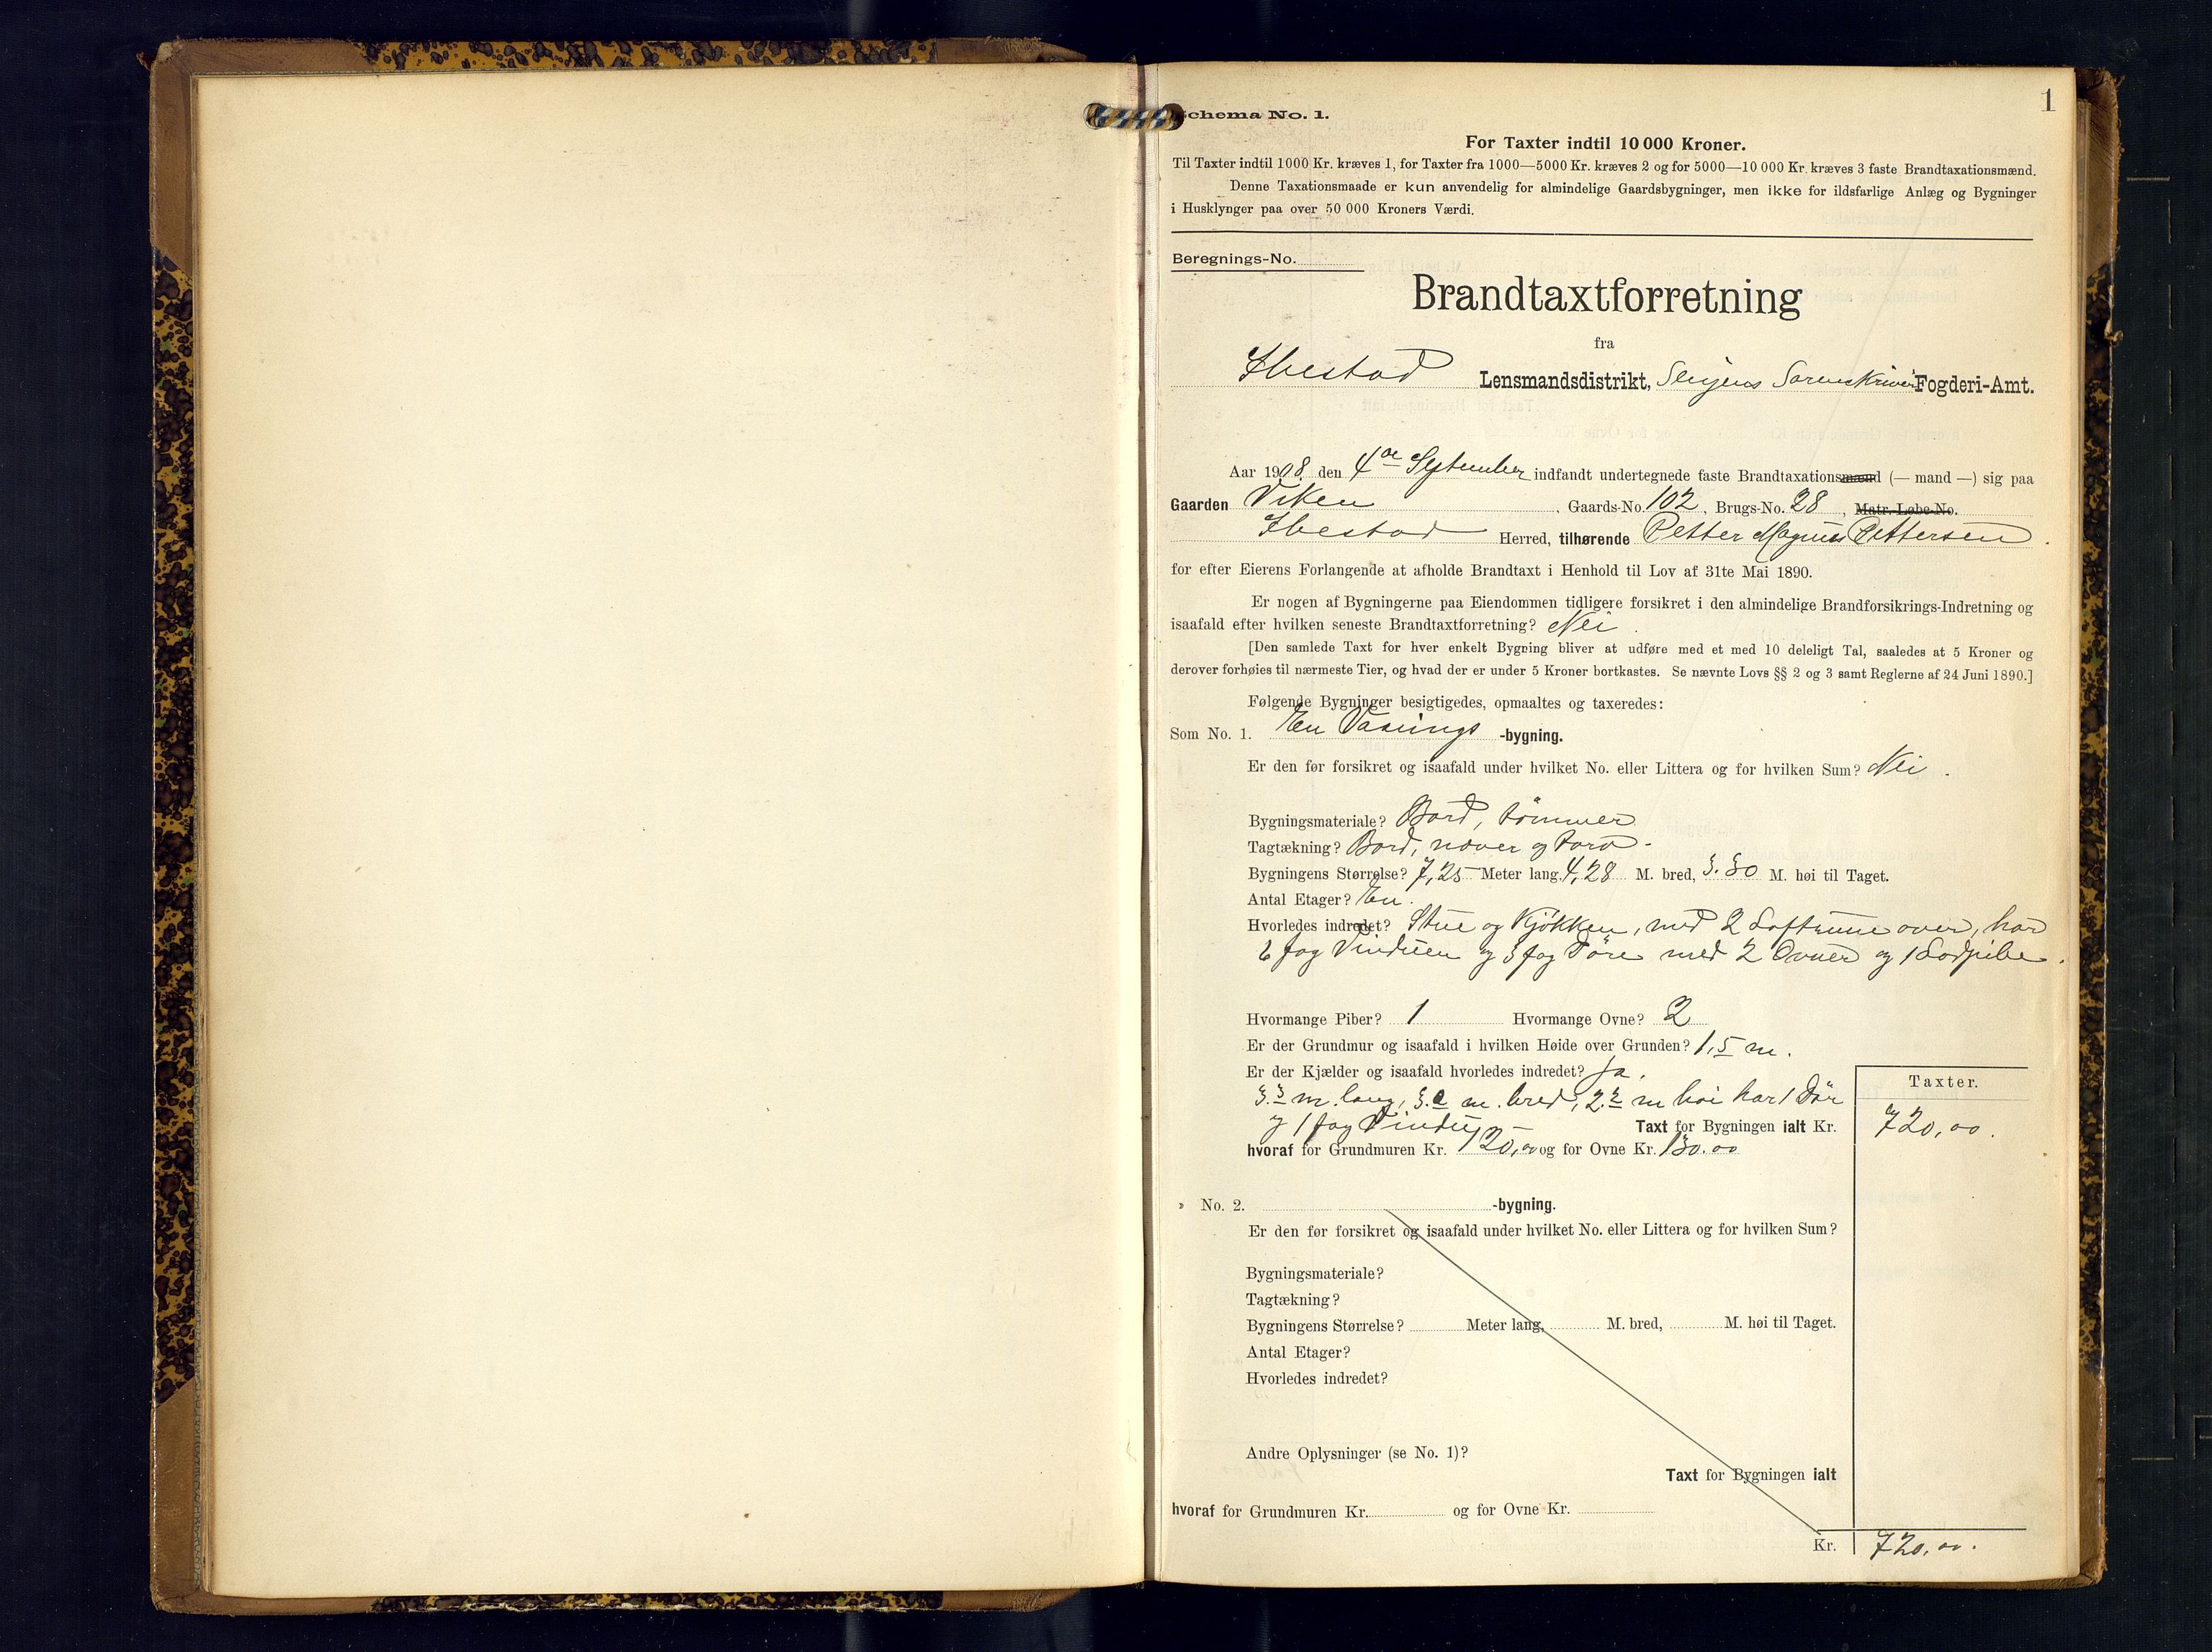 1
Schema No. 1.
For Taxter indtil 10 000 Kroner.
Til Taxter indtil 1000 Kr. kræves 1, for Taxter fra 1000—5000 Kr. kræves 2 og for 5000—10 000 Kr. kræves 3 faste Brandtaxationsmænd.
Denne Taxationsmaade er kun anvendelig for almindelige Gaardsbygninger, men ikke for ildsfarlige Anlæg og Bygninger
i Husklynger paa over 50 000 Kroners Værdi.
Beregnings-No.
Brandtaxtforretning
fra
Ibestad Lensmandsdistrikt, Senjens Sorenskriveri Fogderi-Amt.
Aar 1908 den 4de September indfandt undertegnede faste Brandtaxationsmænd (— mand —) sig paa
Gaarden Viken Gaards-No. 102, Brugs-No. 28, Matr.-Løbe-No.
Ibestad Herred, tilhørende Petter Magnus Pettersen.
for efter Eierens Forlangende at afholde Brandtaxt i Henhold til Lov af 31te Mai 1890.
Er nogen af Bygningerne paa Eiendommen tidligere forsikret i den almindelige Brandforsikrings-Indretning og
isaafald efter hvilken seneste Brandtaxtforretning? Nei.
[Den samlede Taxt for hver enkelt Bygning bliver at udføre med et med 10 deleligt Tal, saaledes at 5 Kroner og
derover forhøies til nærmeste Tier, og hvad der er under 5 Kroner bortkastes. Se nævnte Lovs §§ 2 og 3 samt Reglerne af 24 Juni 1890.]
Følgende Bygninger besigtigedes, opmaaltes og taxeredes:
Som No. 1. En Vaaings -bygning.
Er den før forsikret og isaafald under hvilket No. eller Littera og for hvilken Sum? Nei.
Bygningsmateriale? Bord, tömmer
Tagtækning? Bord, næver og torv.
Bygningens Størrelse? 7,25 Meter lang, 4,28 M. bred, 3.30 M. høi til Taget.
Antal Etager? En.
Hvorledes indredet? Stue og Kjökken, med 2 Loftrume over, har
6 fag Vinduer og 3 fag Döre med 2 Ovner og 1 Sodpibe.
Hvormange Piber? 1 Hvormange Ovne? 2
Er der Grundmur og isaafald i hvilken Høide over Grunden? 1,5 m.
Er der Kjælder og isaafald hvorledes indredet? Ja.
Taxter.
m. lang, m. bred, m høi har 1 Dör
og 1 fag Vindu Taxt for Bygningen ialt Kr. 720,00.
hvoraf for Grundmuren Kr. 120,00 og for Ovne Kr. 130.00
» No. 2. -bygning.
Er den før forsikret og isaafald under hvilket No. eller Littera og for hvilken Sum?
Bygningsmateriale?
Tagtækning?
Bygningens Størrelse? Meter lang, M. bred, M. høi til Taget.
Antal Etager?
Hvorledes indredet?
Andre Oplysninger (se No. 1)?
Taxt for Bygningen ialt
hvoraf for Grundmuren Kr. og for Ovne Kr.
Kr. 720,00.